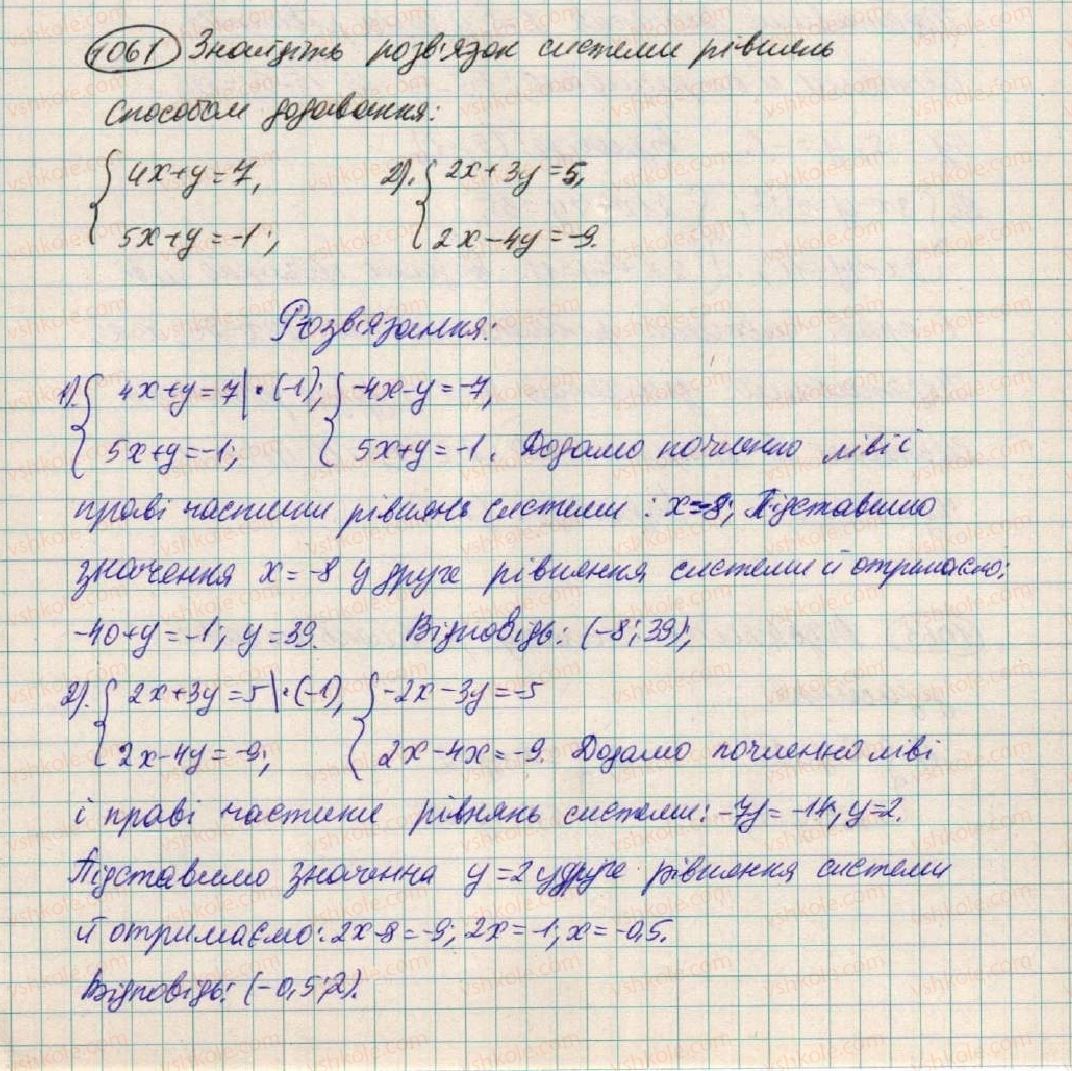 1061 Знайдіть розв'язок системи рівнянь
способом додавання:
{ 4x+y=7, 2). { 2x+3y=5,
5x+y=-1; 2x-4y=-9.
Розв'язання:
1). { 4x+y=7|·(-1); { -4x-y=-7,
5x+y=-1; 5x+y=-1. Додамо почленно ліві і
праві частини рівнянь системи: x=-8; Підставимо
значення x=-8 у друге рівняння системи й отримаємо:
-40+y=-1; y=39. Відповідь: (-8;39),
2). { 2x+3y=5|·(-1), { -2x-3y=-5
2x-4y=-9; 2x-4x=-9. Додамо почленно ліві
і праві частини рівнянь системи: -7y=-14, y=2.
Підставимо значенна y=2 у друге рівняння системи
й отримаємо: 2x-8=-9; 2x=-1; x=-0,5.
Відповідь: (-0,5;2).
vshkole.com